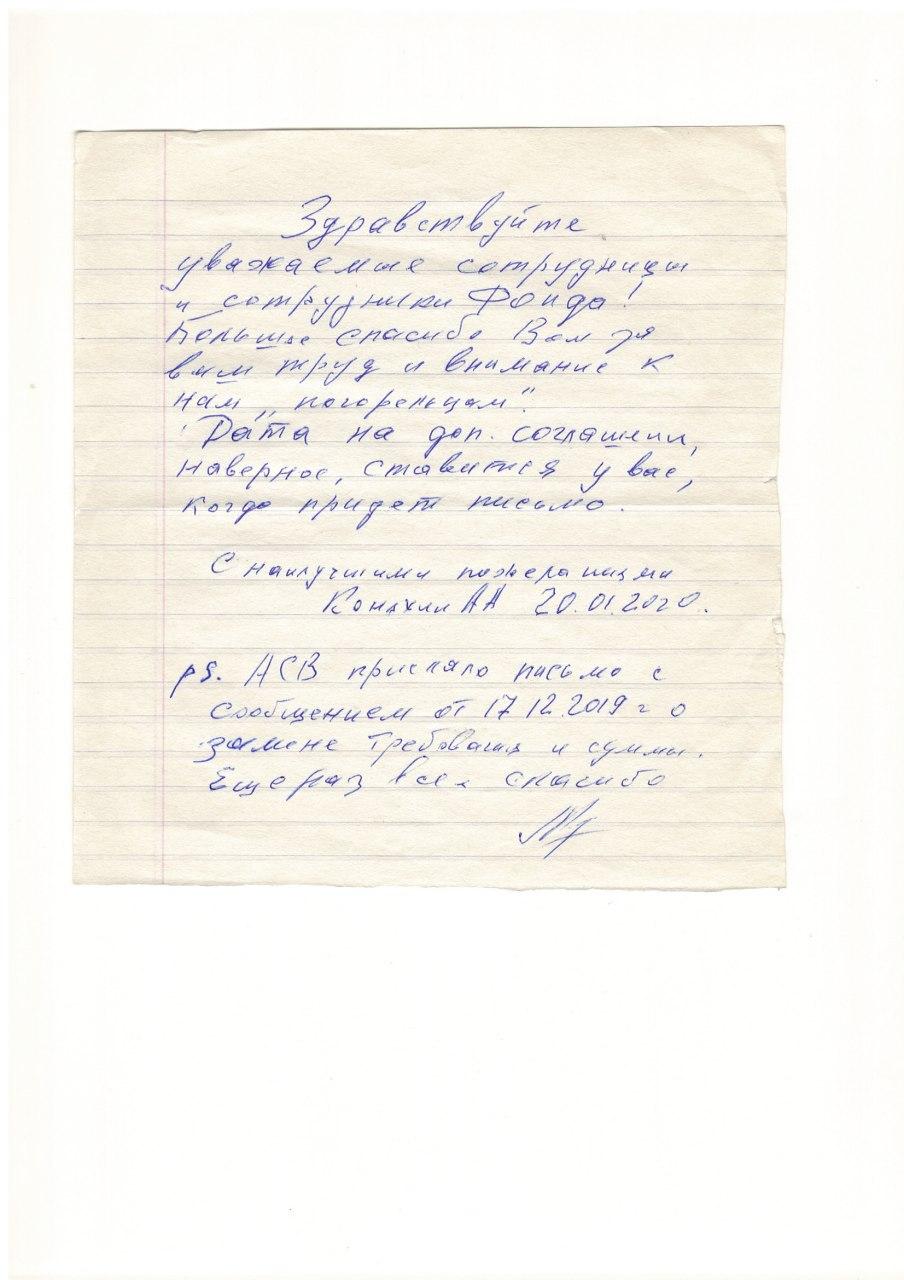 Здравствуйте
уважаемые сотрудницы
и сотрудники Фонда!
Большое спасибо Вам за
ваш труд и внимание к
нам „погорельцам".
Дата на доп. соглашении,
наверное, ставится у вас,
когда придет письмо.
С наилучшими пожеланиями
АА 20.01.2020.
ps. АСВ прислало письмо с
сообщением от 17 12.2019 г о
замене требования и суммы.
Еще раз всем спасибо